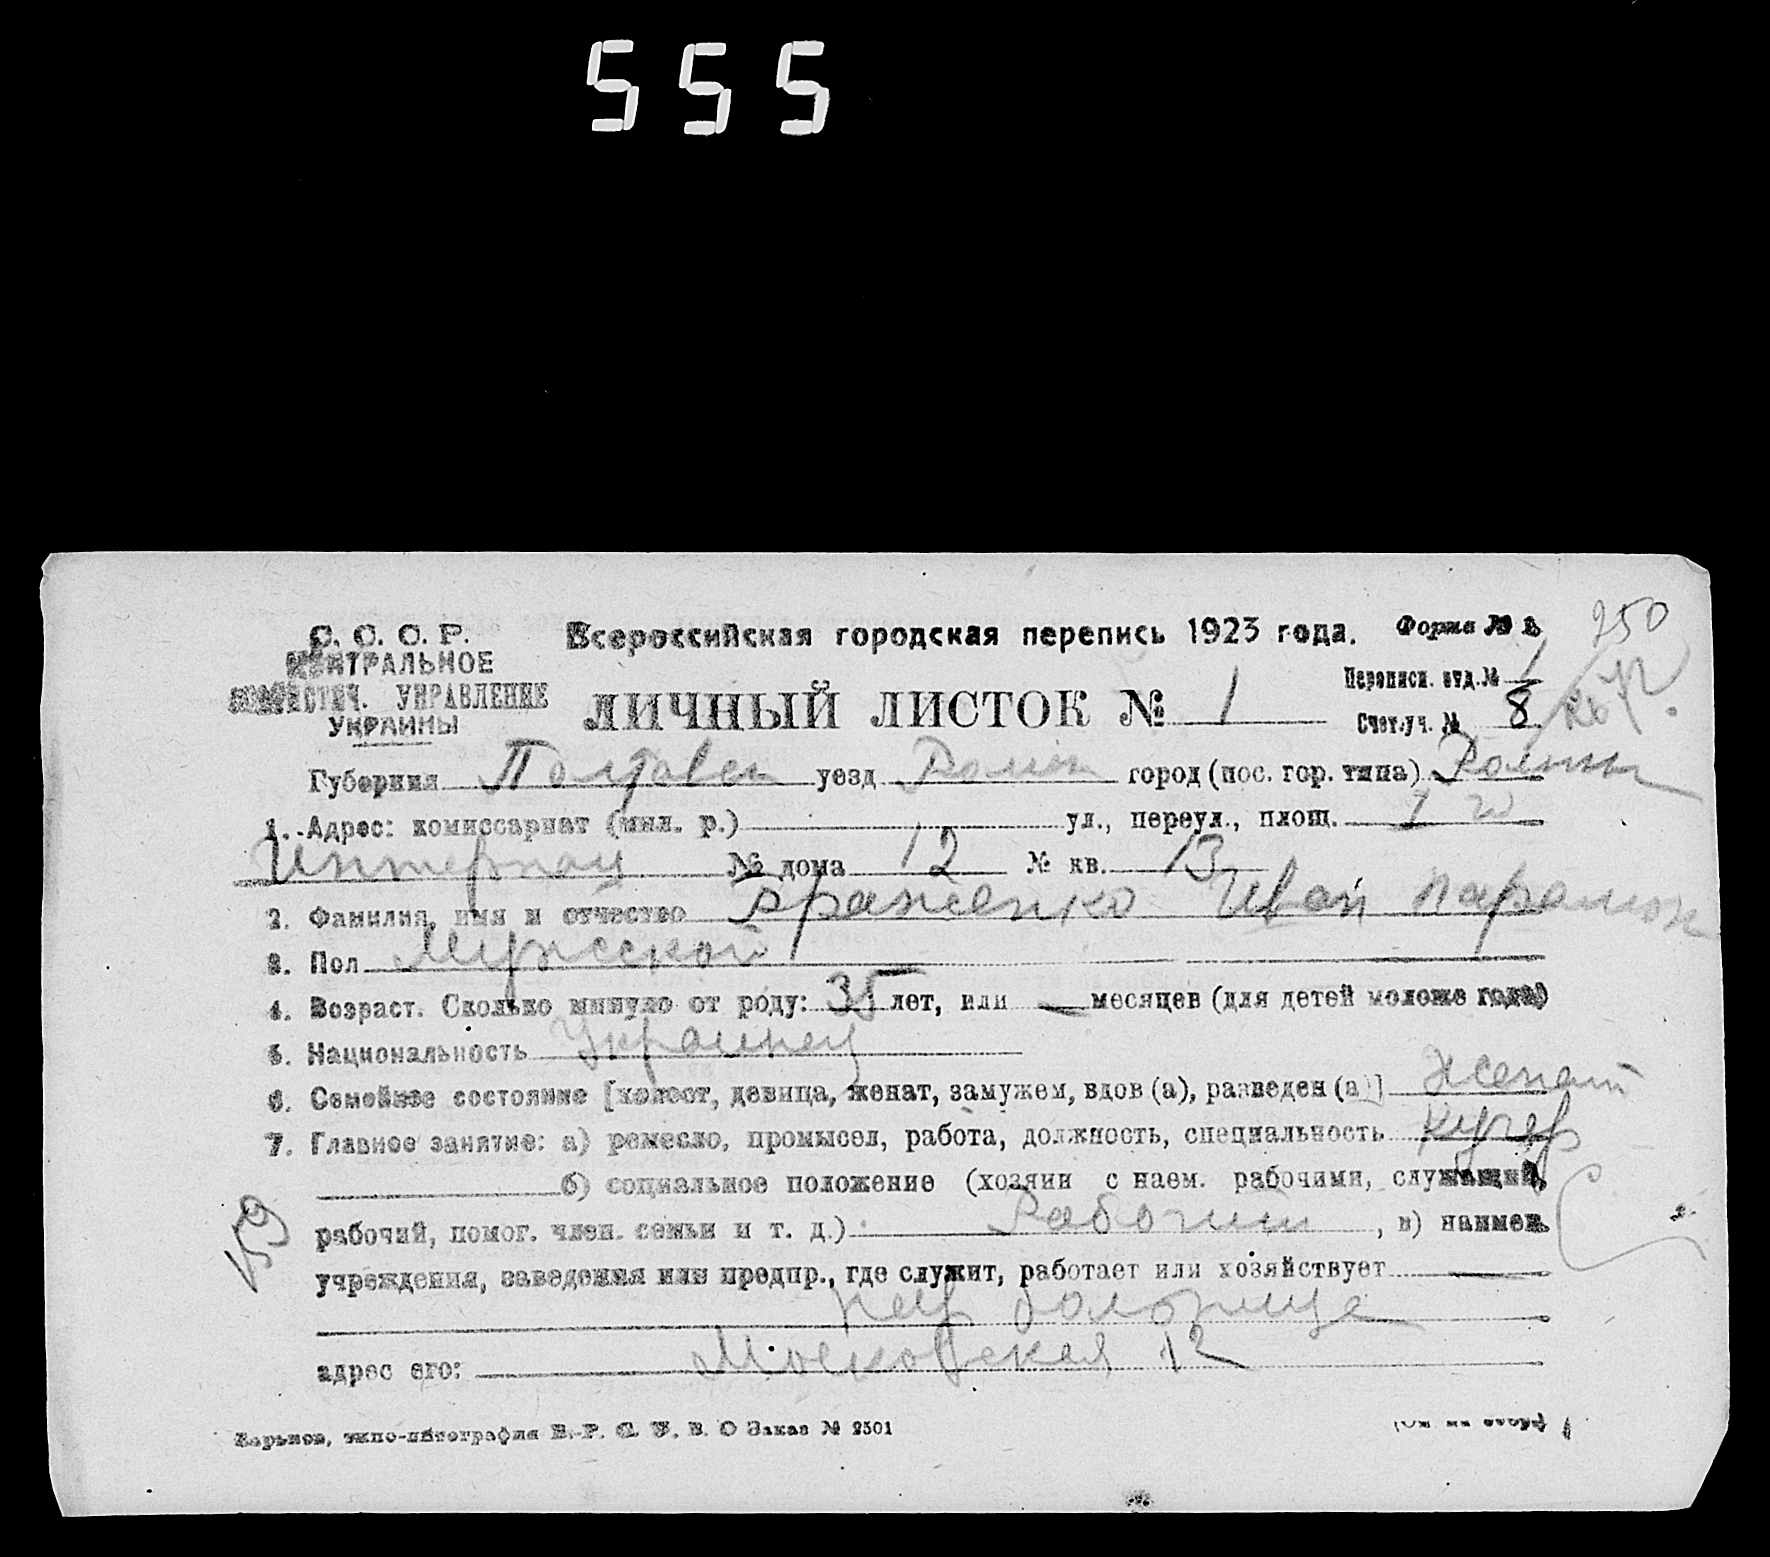 555
С. С. С. Р.
ЦЕНТРАЛЬНОЕ
СТАТИСТИЧ. УПРАВЛЕНИЕ
УКРАИНЫ
Всероссийская городская перепись 1923 года.
Форма № 1.
250
ЛИЧНЫЙ ЛИСТОК № 1
Переписн. отд. № 1
Счет. уч. № 8
Губерния Полтавск уезд Ромен город (пос. гор. типа) Ромны
1. Адрес: комиссариат (мил. р.) ул., переул., площ. 1 го
Интернац № дома 12 № кв. 13
2. Фамилия, имя и отчество Иван Парамон
3. Пол Мужсской
4. Возраст. Сколько минуло от роду: 35 лет, или — месяцев (для детей моложе года)
5. Национальность Украинец
6. Семейное состояние [холост, девица, женат, замужем, вдов (а), разведен (а)] Женат
7. Главное занятие: а) ремесло, промысел, работа, должность, специальность кучер
б) социальное положение (хозяин с наем. рабочими, служащий,
рабочий, помог. член. семьи и т. д.) Рабочий, в) наимен.
159
учреждения, заведения или предпр., где служит, работает или хозяйствует
больница
адрес его: Московская 12
Харьков, типо-литография В. Р. С. У. В. О Заказ № 2501